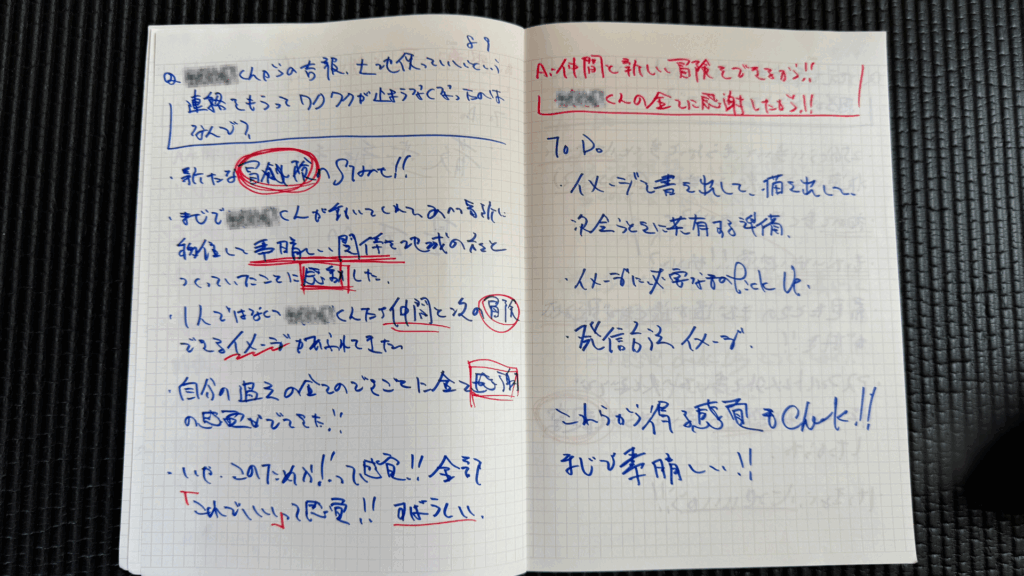 89
Q. くんからの吉報、土地使っていいという
連絡をもらってワクワクが止まらなくなったのは
なんで?
・新たな冒険のStart!!
・まじで くんが動いてくれて、
移住して素晴しい関係を地域の方と
つくっていたことに感謝した。
・1人ではない くんたち仲間と次の冒険
できるイメージがあふれてきた。
・自分の過去の全てのできごとに全て感謝
の感覚がでてきた!!
・いや、このためか!!って感覚!! 全部
「これでいい」って感覚!! すばらしい。
A. 仲間と新しい冒険をできるから!!
くんの全てに感謝したから!!
To Do
・イメージを書き出して、描き出して、
次会うときに共有する準備。
・イメージに必要なものPick Up.
・発信方法イメージ.
これらから得る感覚もCheck!!
まじで素晴しい!!